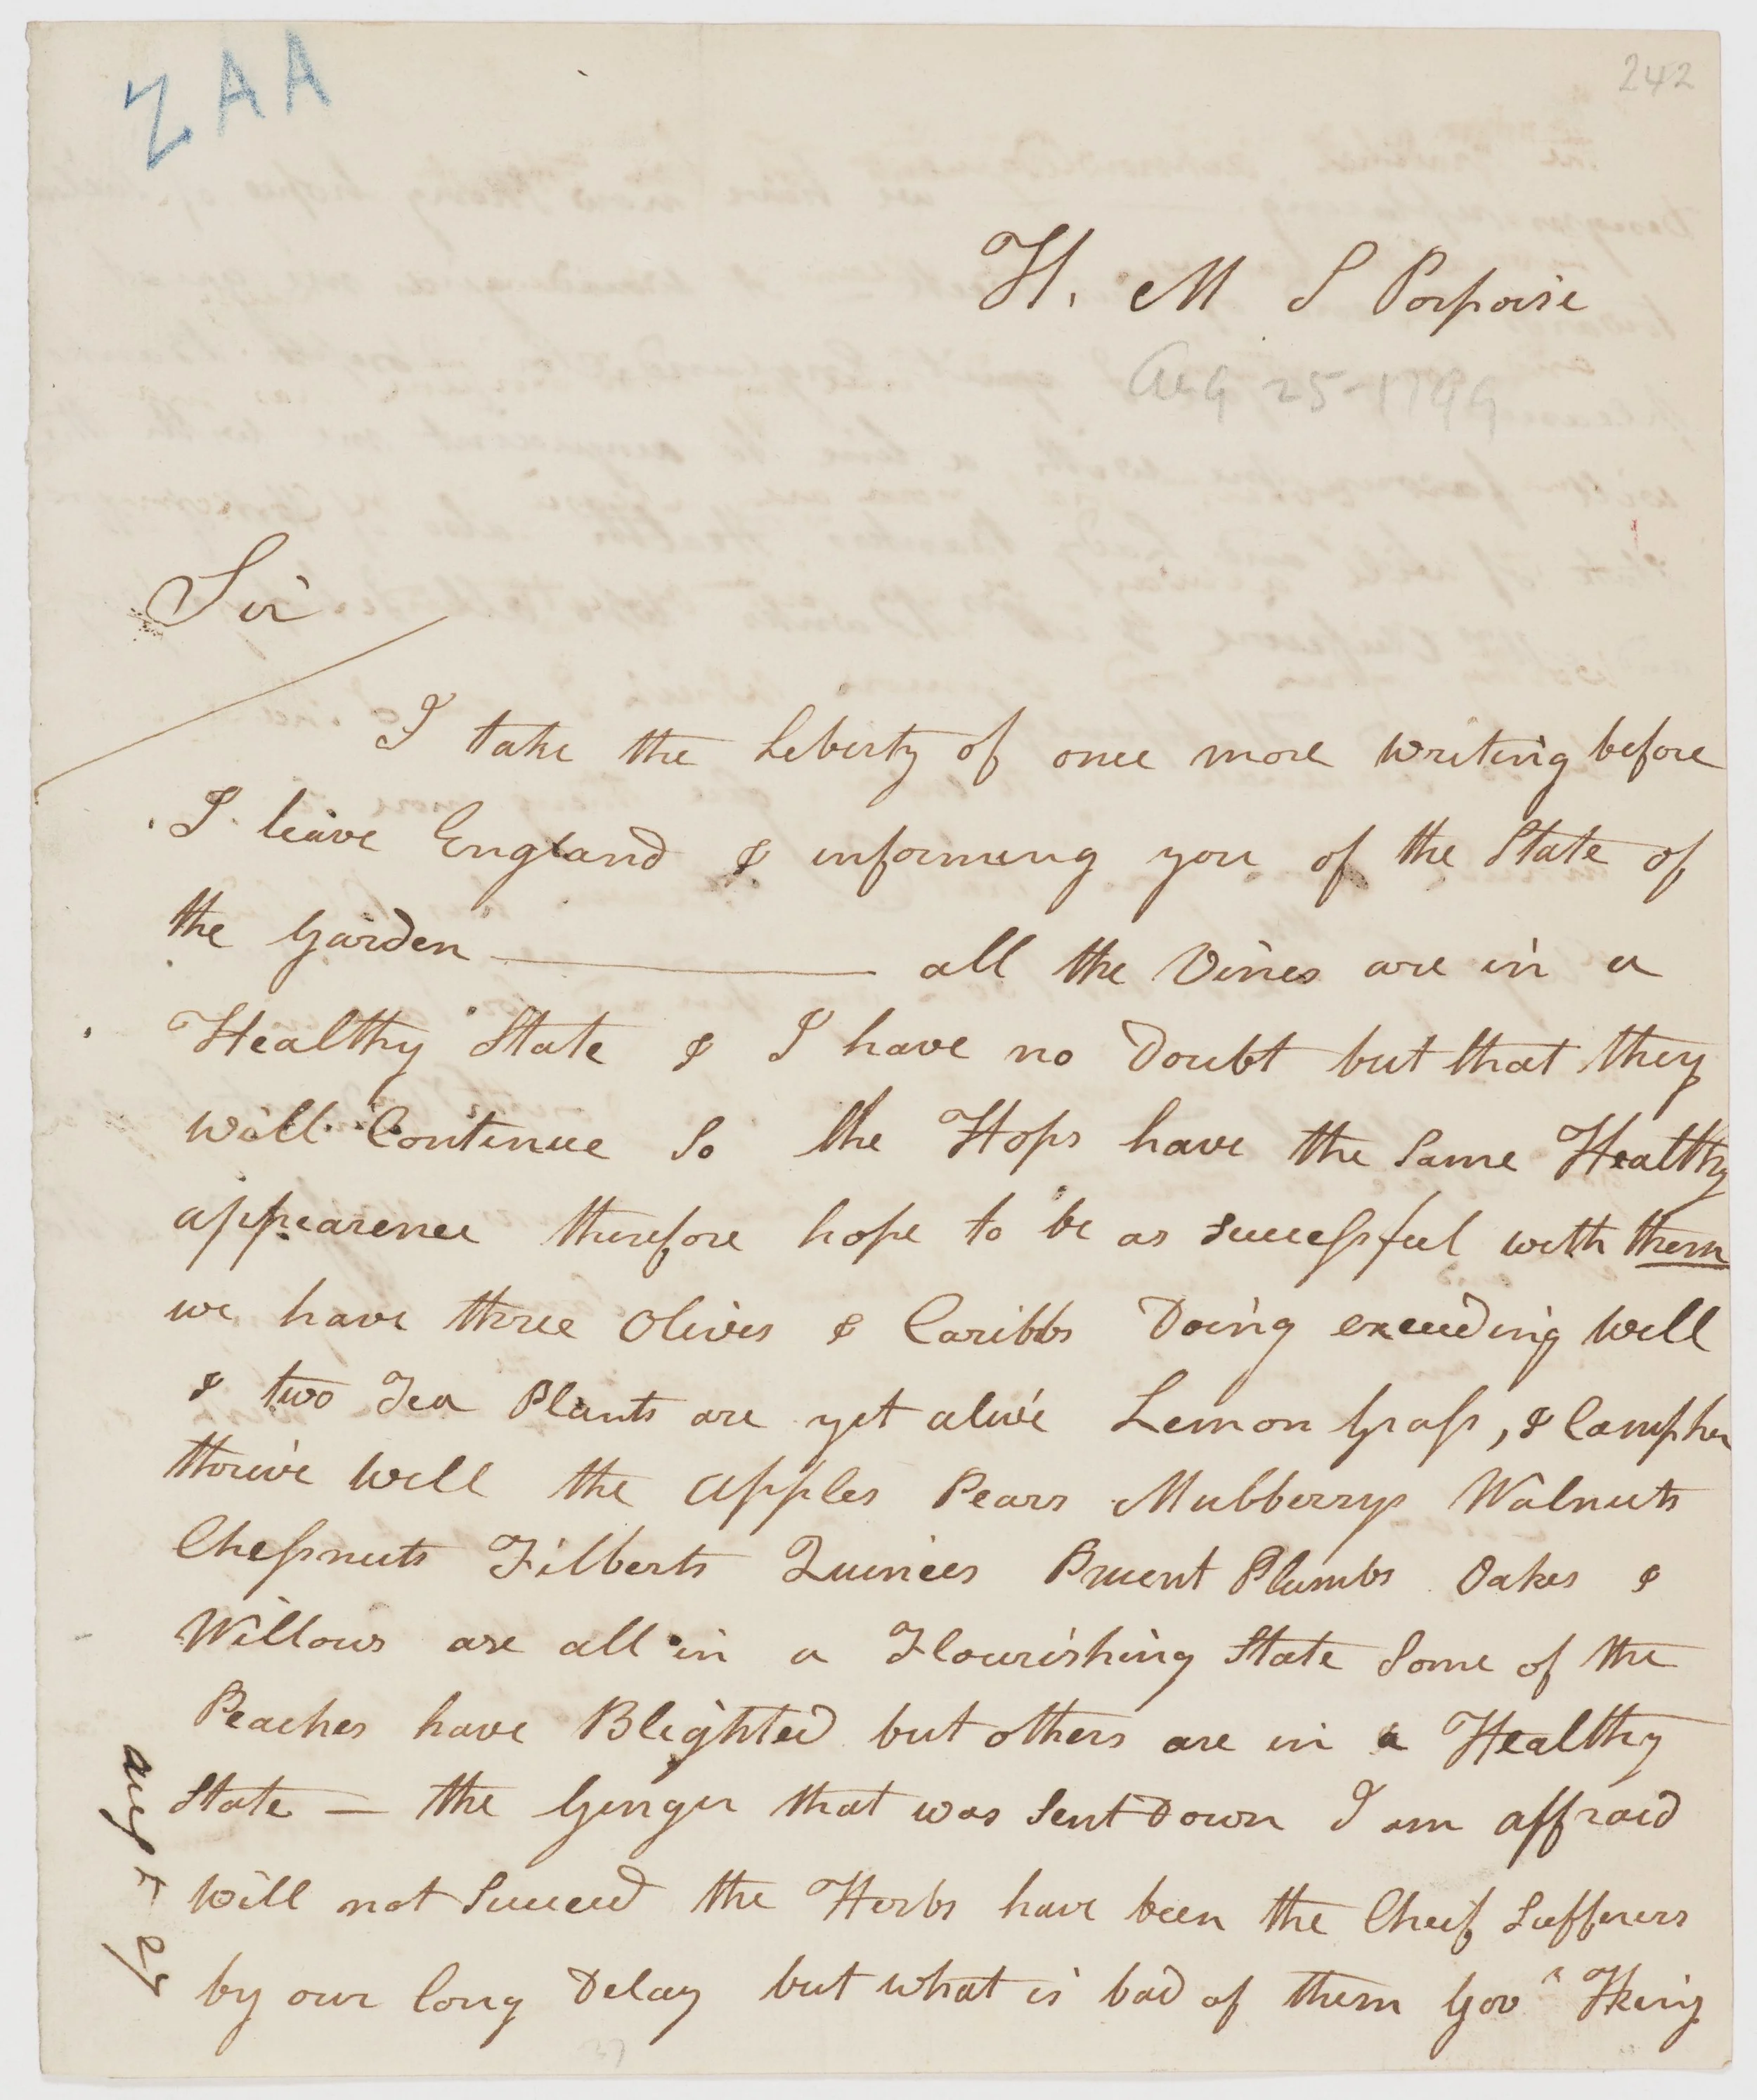 ZAA
242
H. M S Porpoise
Aug 25-1799
Sir
I take the Liberty of once more writing before
I leave England & informing you of the State of
the Garden — all the Vines are in a
Healthy State & I have no Doubt but that they
will Continue So the Hops have the Same Healthy
appearence therefore hope to be as successful with them
we have three Olives & Caribbs Doing exceeding well
& two Tea Plants are yet alive Lemon Grass, & Campher
thrive well the Apples Pears Mulberrys Walnuts
Chessnuts Filberts Quinces Pruent Plumbs Oakes &
Willows are all in a Flourishing State Some of the
Peaches have Blighted but others are in a Healthy
State — the Ginger that was Sent Down I am affraid
will not Succeed the Herbs have been the Cheif Sufferers
by our long Delay but what is bad of them Govr King
Augt 25